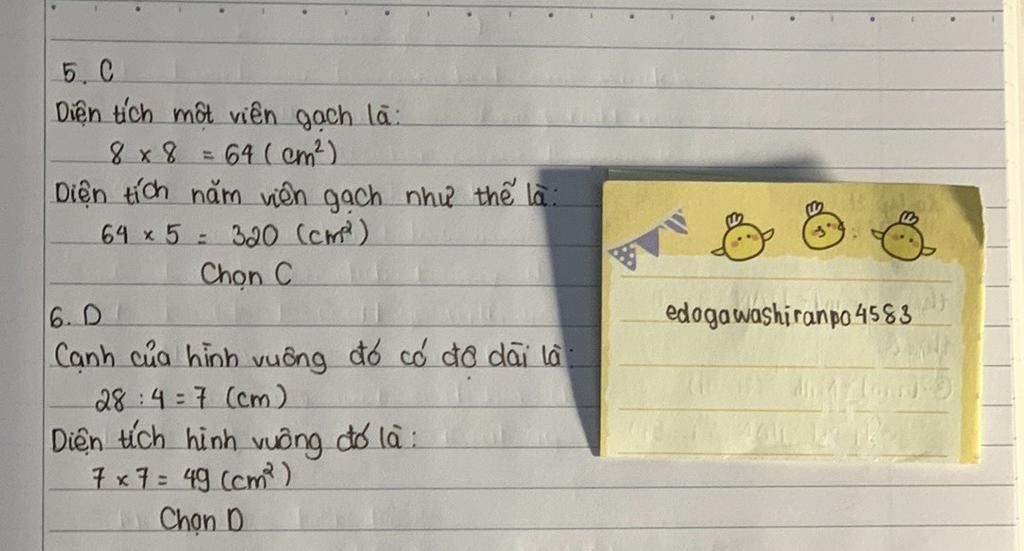 5. C
Diện tích một viên gạch là:
8 x 8 = 64 (cm²)
Diện tích năm viên gạch như thế là:
64 x 5 = 320 (cm²)
Chọn C
6. D
Cạnh của hình vuông đó có độ dài là:
28 : 4 = 7 (cm)
Diện tích hình vuông đó là:
7 x 7 = 49 (cm²)
Chọn D
edogawashiranpo4583